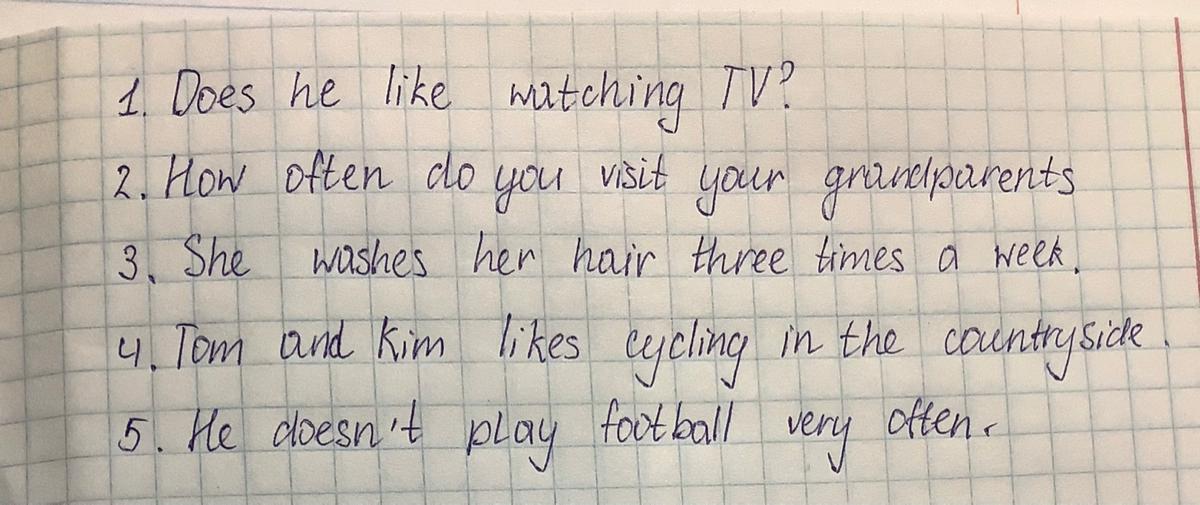 1. Does he like watching TV?
2. How often do you visit your grandparents
3. She washes her hair three times a week.
4. Tom and Kim likes cycling in the countryside.
5. He doesn't play football very often.